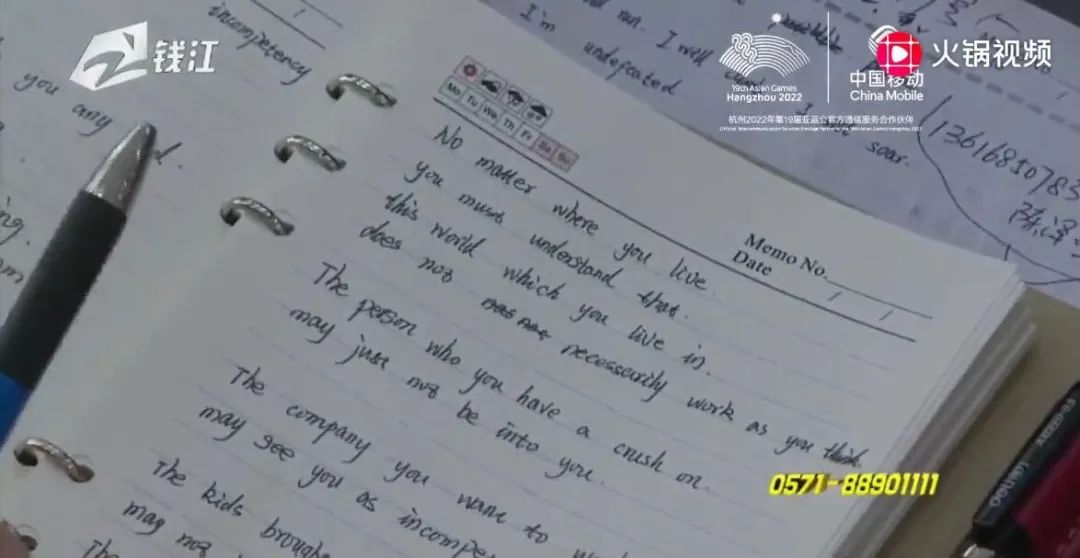 钱江
19th Asian Games
Hangzhou 2022
中国移动
China Mobile
火锅视频
杭州2022年第19届亚运会官方通信服务合作伙伴
incompetency
you any
I'm
undefeated
I will
soar.
13616850783
Mo Tu We Th Fr Sa Su
Memo No.
Date
No matter where you live.
you must understand that.
this world which you live in.
does not necessarily work as you think
The person who you have a crush on.
may just not be into you.
The company you want to
may see you as incompe
The kids brough
may no
The
0571-88901111
deli